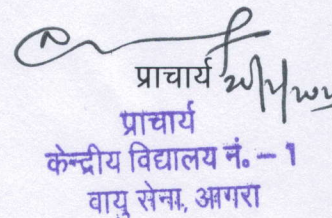 प्राचार्य
प्राचार्य
केन्द्रीय विद्यालय नं. – 1
वायु सेना, आगरा